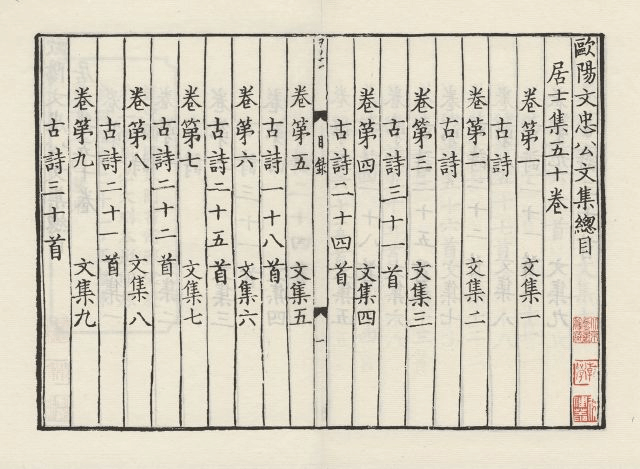 歐陽文忠公文集總目
居士集五十卷
卷第一 文集一
古詩
卷第二 文集二
古詩
卷第三 文集三
古詩三十一首
卷第四 文集四
古詩二十四首
目錄 一
卷第五 文集五
古詩一十八首
卷第六 文集六
古詩二十五首
卷第七 文集七
古詩二十二首
卷第八 文集八
古詩二十一首
卷第九 文集九
古詩三十首